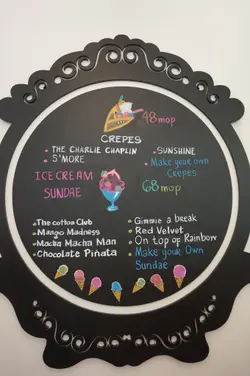 48 mop
CREPES
• THE CHARLIE CHAPLIN
• S'MORE
• SUNSHINE
• Make your own
Crepes
ICE CREAM
SUNDAE
68 mop
• The cotton Club
• Mango Madness
• Macha Macha Man
• Chocolate Piñata
• Gimmie a break
• Red Velvet
• On top of Rainbow
• Make your Own
Sundae